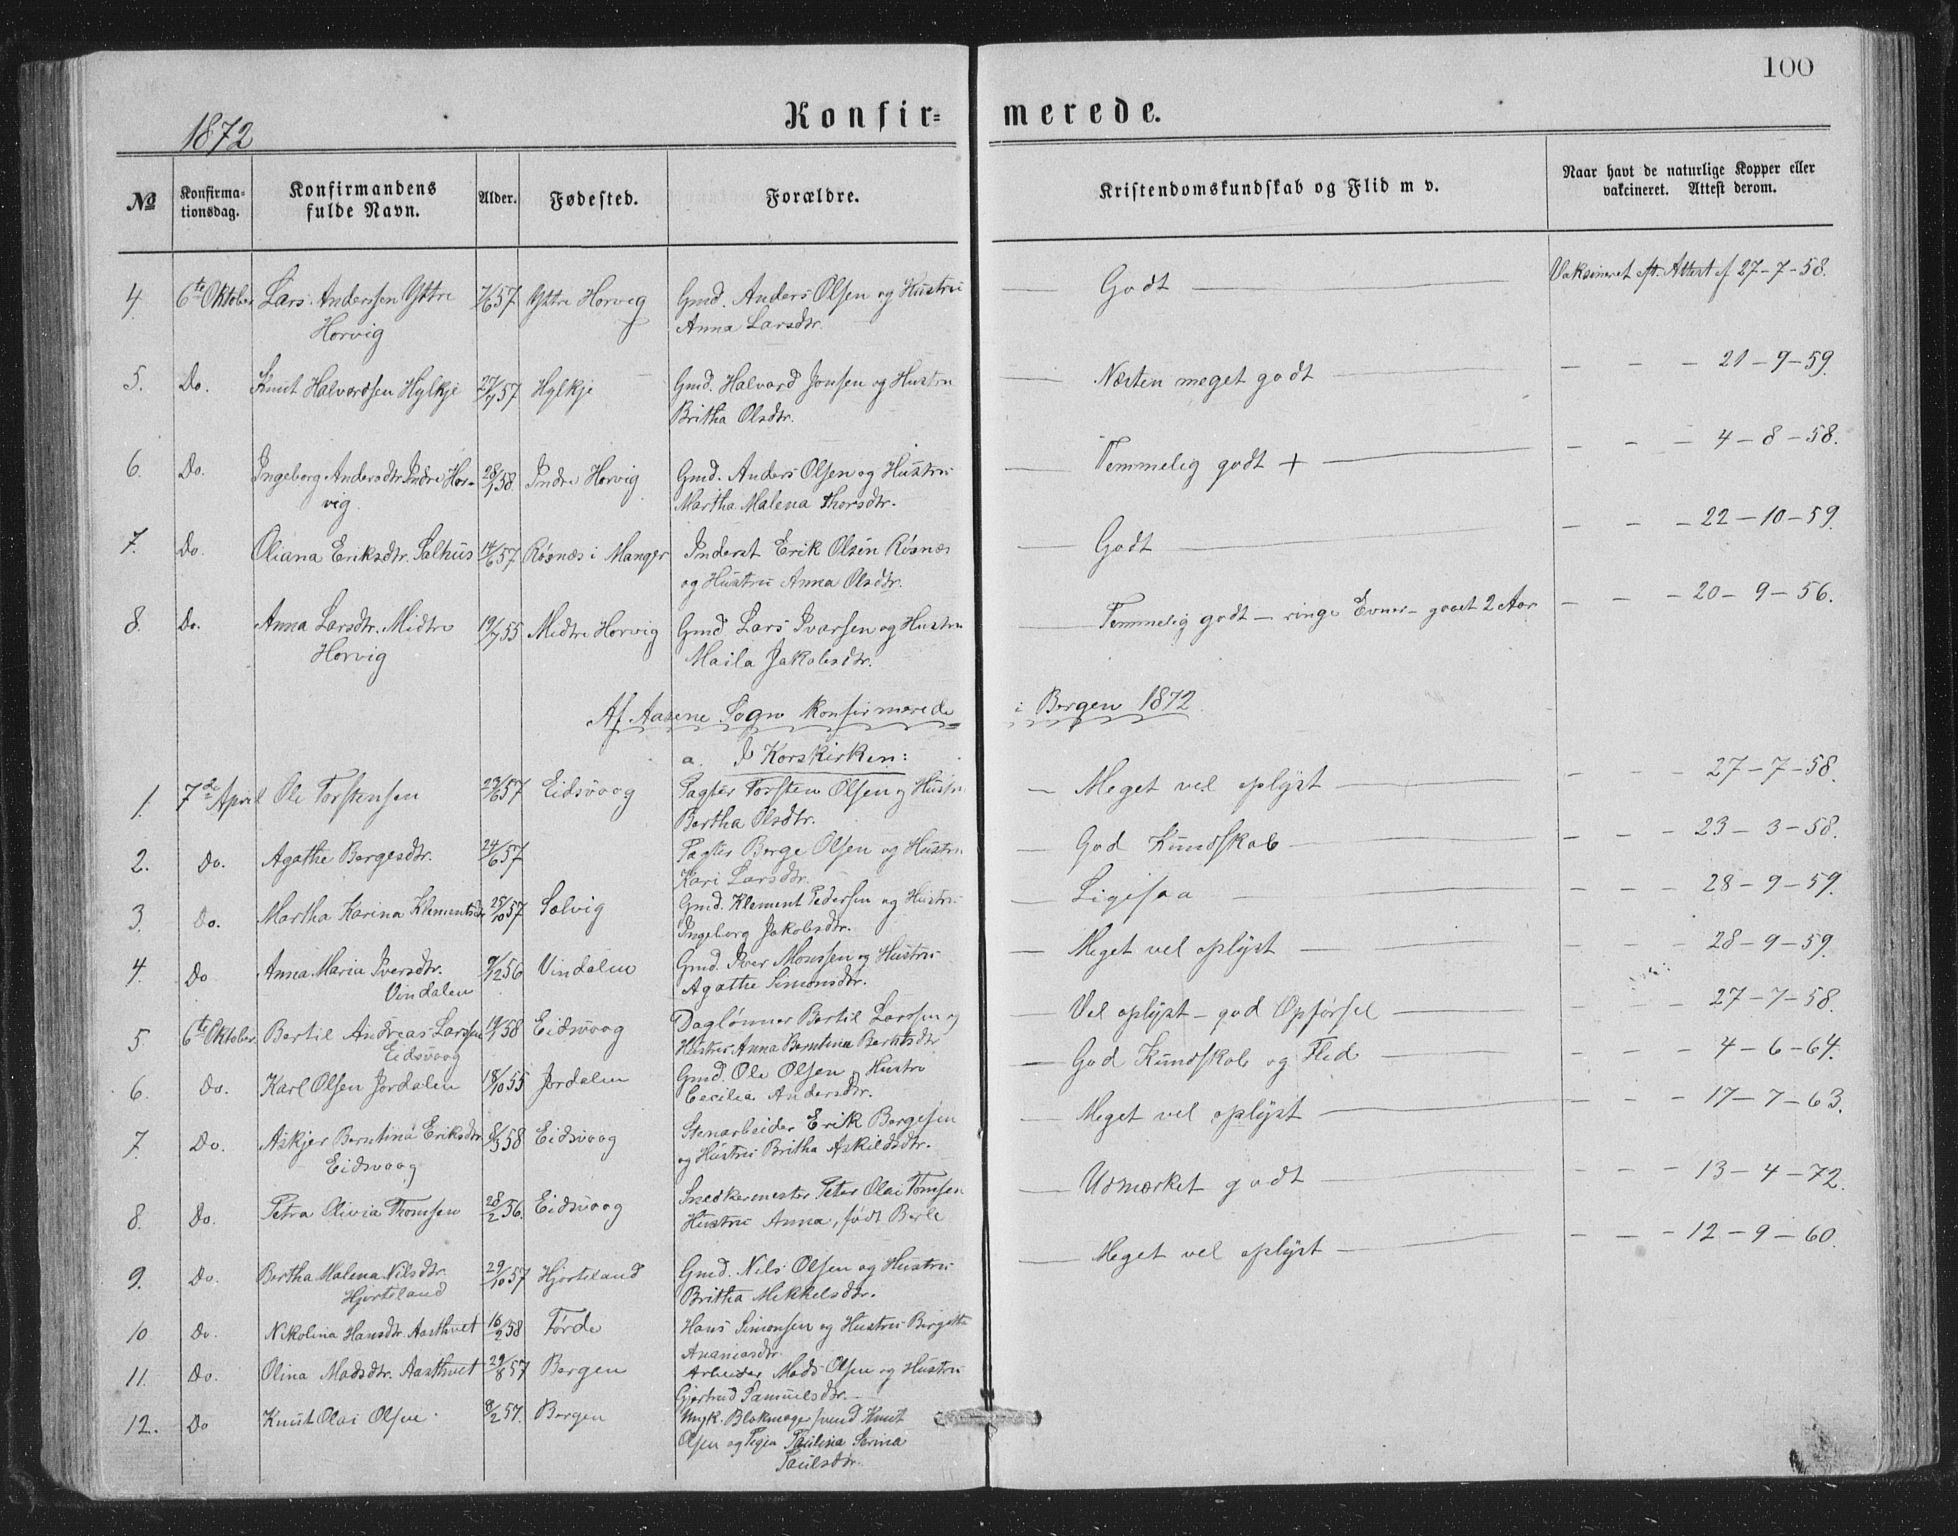 100
1872
Konfir= merede.
№ Konfirma=tionsdag. Konfirmandens fulde Navn. Alder. Fødested. Forældre. Kristendomskundskab og Flid m v. Naar havt de naturlige Kopper eller vakcineret. Attest derom.
4. 6te Oktober Lars Anderssen Yttre 7/6 57 Yttre Horvig Gmd. Anders Olsen og Hustru — Godt — Vaksineret flt. Attest af 27-7-58.
Horvig Anna Larsdtr.
5. Do. Knut Halvordsen Hylkje 27/7 57 Hylkje Gmd. Halvard Jonsen og Hustru — Næsten meget godt — 21-9-59.
Britha Olsdtr.
6 Do. Ingeborg Andersdtr. Indre Hor- 28/1 58. Indre Horvig Gmd. Anders Olsen og Hustru — Temmelig godt + — 4-8-58.
vig. Martha Malena Thorsdtr.
7. Do. Oliana Eriksdtr. Salhus 14/6 57 Røsnæs i Manger Inderst Erik Olsen Røsnæs — Godt — 22-10-59.
og Hustru Anna Olsdtr.
8. Do. Anna Larsdtr. Midtre 19/7 55 Midtre Horvig Gmd Lars Ivarsen og Hustru — Temmelig godt — ringe Evner — gaaet 2 Aar — 20-9-56.
Horvig Maila Jakobsdtr.
Af Aasene Sogn konfirmerede i Bergen 1872.
a. I Korskirken:
1. 7de April Ole Torstensen 23/6 57 Eidsvaag Pagter Torsten Olsen og Hustru — Meget vel oplyst — 27-7-58.
Bertha Olsdtr.
2. Do. Agathe Børgesdtr. 24/6 57 Pagter Børge Olsen og Hustru — God Kundskab — 23-3-58.
Kari Larsdtr.
3. Do. Martha Karina Klementsdtr 25/10 57 Sølvig Gmd. Klement Pedersen og Hustru — Ligesaa — 28-9-59.
Ingeborg Jakobsdtr.
4 Do Anna Marie Iversdtr. 9/2 56 Vindalen Gmd. Iver Monssen og Hustru — Meget vel oplyst — 28-9-59.
Vindalen Agathe Simonsdtr.
5 6te Oktober. Bertil Andreas Larssen 19/1 58 Eidsvaag Daglønner Bertil Larssen og — Vel oplyst — god Opførsel — 27-7-58.
Eidsvaag Hustru Anna Berntina Berntsdtr
6. Do. Karl Olsen Jordalen 18/10 55 Jordalen Gmd. Ole Olsen og Hustru — God Kundskab og Flid — 4-6-64.
Cecilia Andersdtr.
7. Do. Askjer Berntina Eriksdtr 8/3 58 Eidsvaag Stenarbeider Erik Børgesen — Meget vel oplyst — 17-7-63.
Eidsvaag og Hustru Britha Askildsdtr.
8. Do. Petra Olivia Thomsen 28/2 56. Eidsvaag Snedkermester Peter Olai Tomsen — Udmærket godt — 13-4-72.
Hustru Anna, født Berle
9. Do. Bertha Malena Nilsdtr. 29/10 57 Hjorteland Gmd. Nils Olsen og Hustru — Meget vel oplyst — 12-9-60.
Hjorteland Britha Mikkelsdtr.
10 Do. Nikolina Hansdtr. Aasthvet 16/2 58 Førde Hans Simonsen og Hustru Birgitta
Ananiasdtr.
11. Do. Olina Madsdtr. Aasthvet 29/8 57 Bergen Arbeider Mads Olsen og Hustru
Gjertrud Samuelsdtr. —
12. Do Knut Olai Olsen. 8/2 57. Bergen Myk. Blokmagersvend Knut
Olsen og Pige Paulina Serina
Paulsdtr.